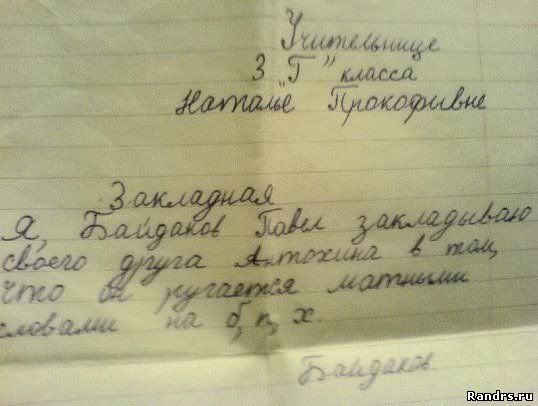 Учительнице
3 "Г" класса
Наталье Прокофивне
Закладная
Я, Байдаков Павел закладываю
своего друга Антохина в том,
что он ругается матными
словами на б, п, х.
Байдаков
Randrs.ru